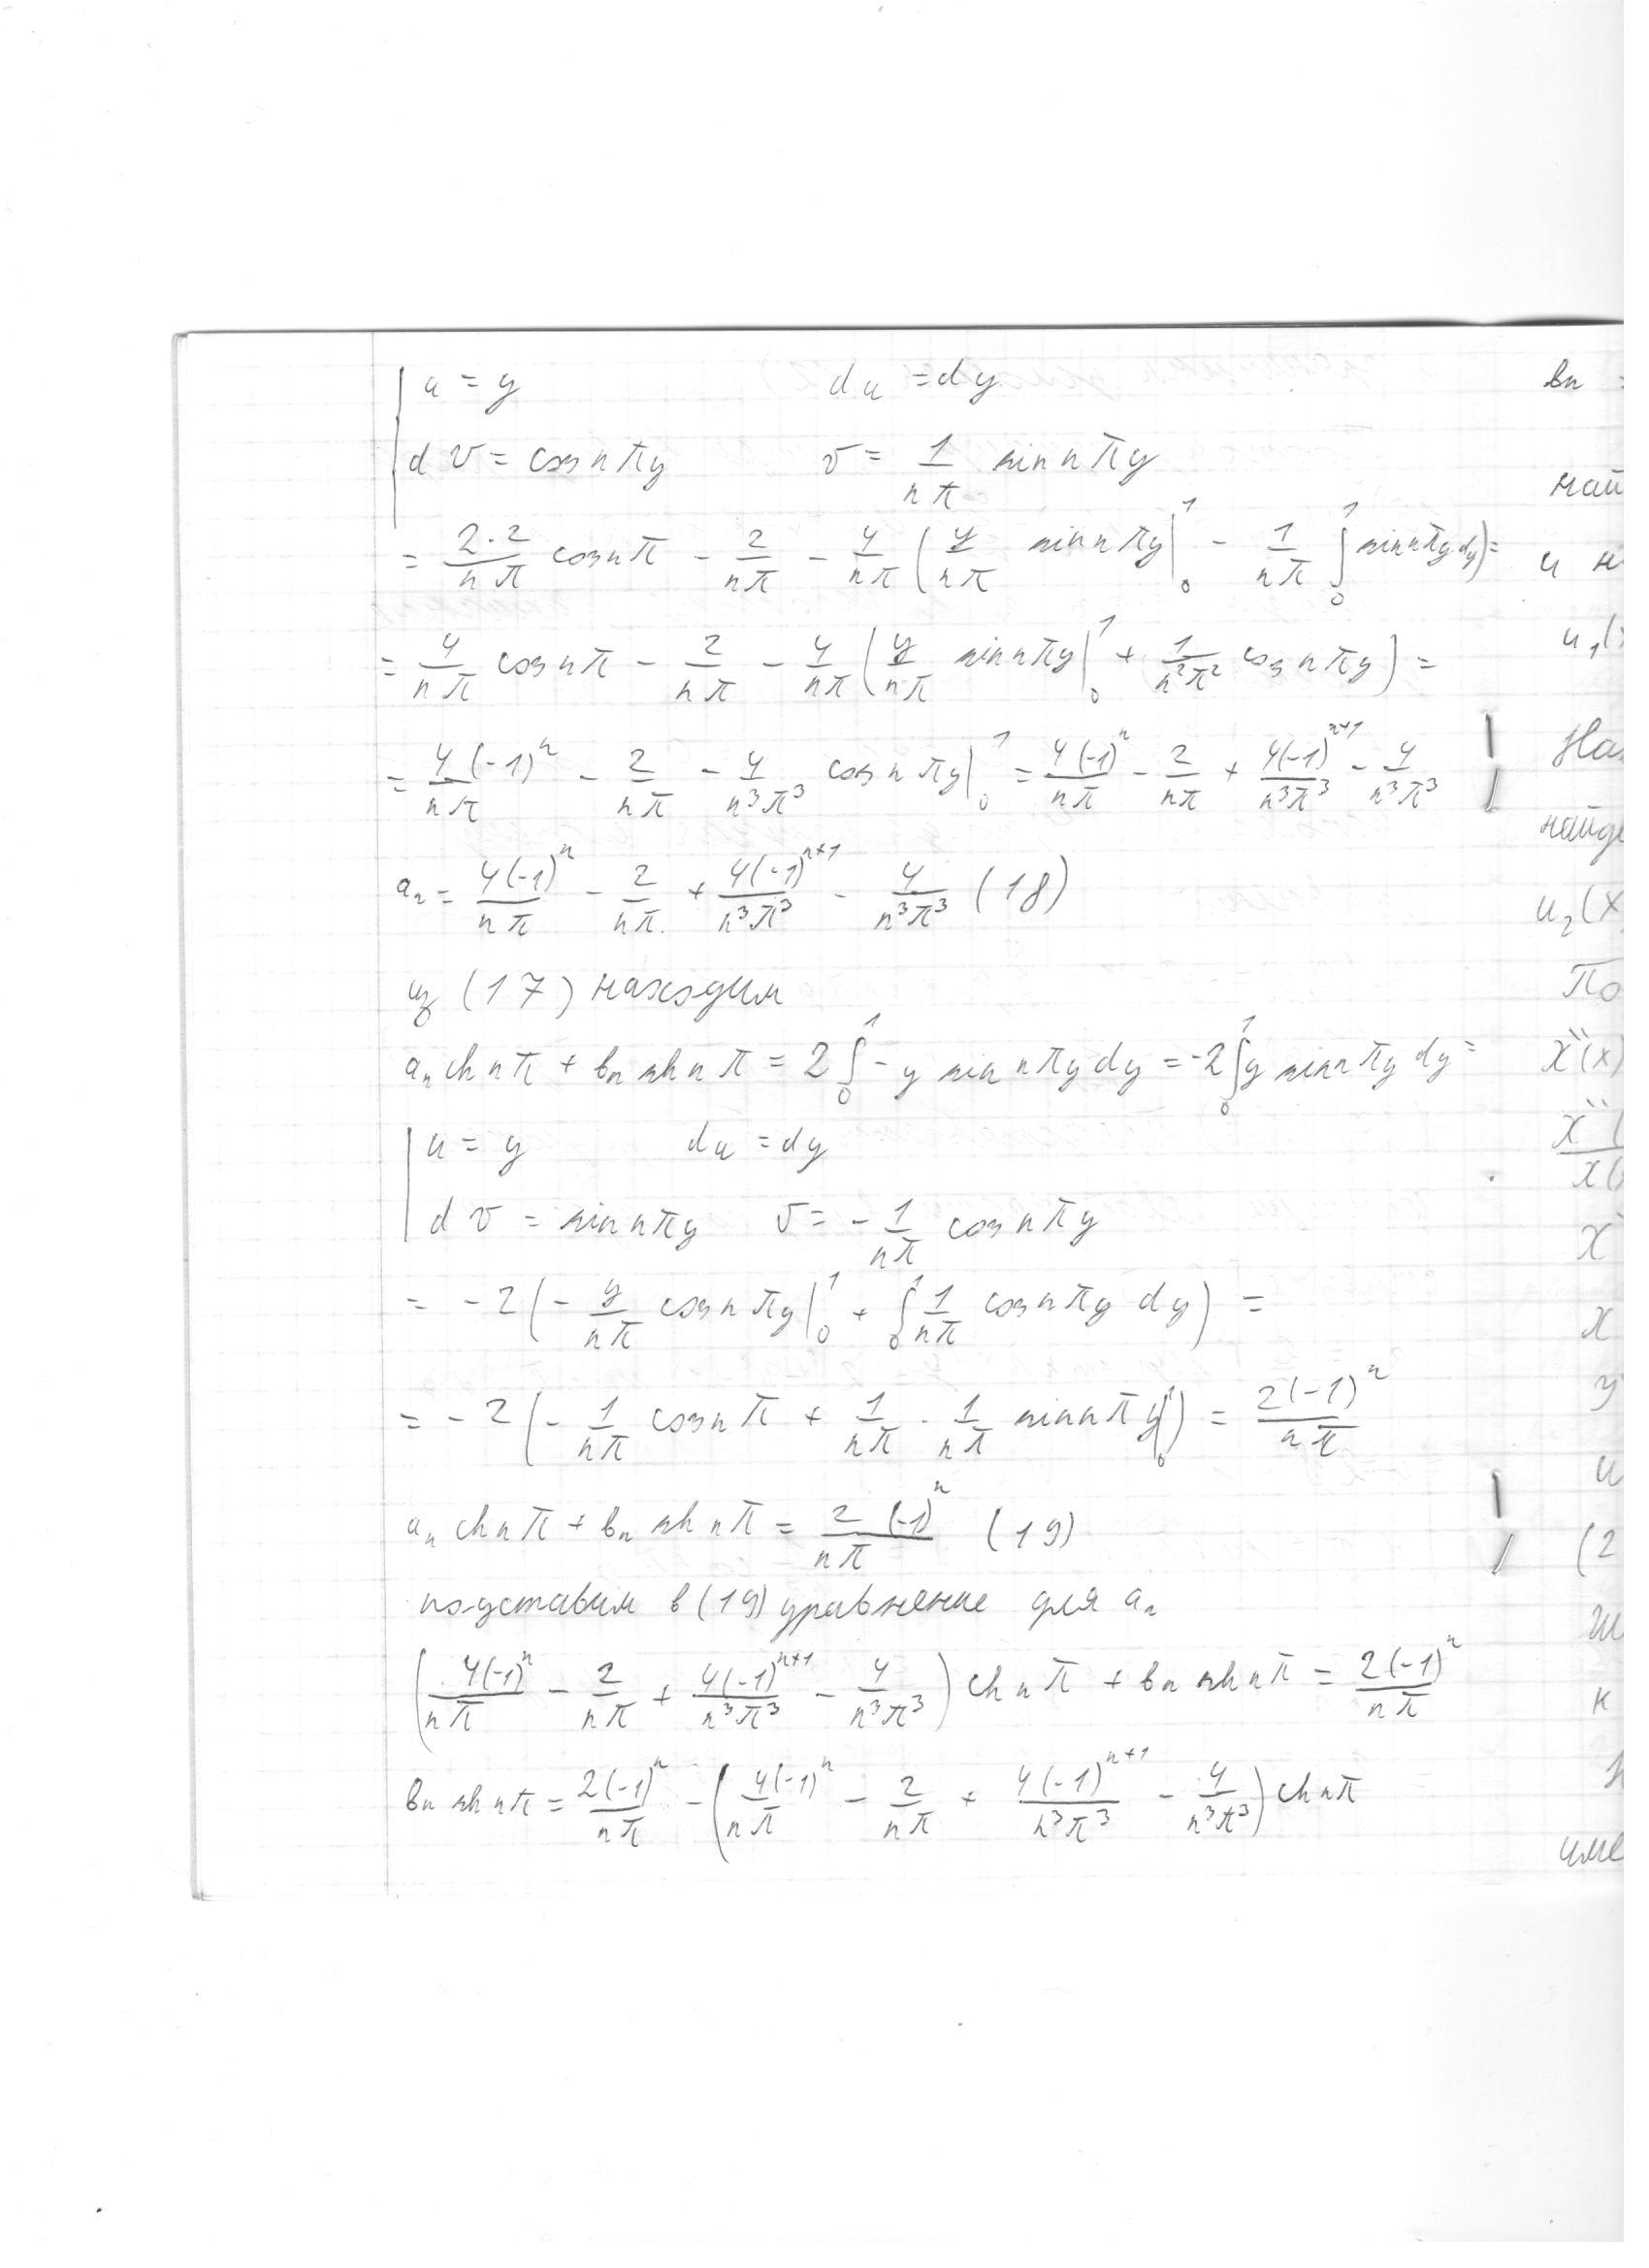 u = y du = dy
dv = cos nπy v = 1/(nπ) sin nπy
= 2·2/(nπ) cos nπ - 2/(nπ) - 4/(nπ) (y/(nπ) sin nπy |₀¹ - 1/(nπ) ∫₀¹ sin nπy dy) =
= 4/(nπ) cos nπ - 2/(nπ) - 4/(nπ) (y/(nπ) sin nπy |₀¹ + 1/(n²π²) cos nπy) =
= 4(-1)ⁿ/(nπ) - 2/(nπ) - 4/(n³π³) cos nπy |₀¹ = 4(-1)ⁿ/(nπ) - 2/(nπ) + 4(-1)ⁿ⁺¹/(n³π³) - 4/(n³π³)
aₙ = 4(-1)ⁿ/(nπ) - 2/(nπ) + 4(-1)ⁿ⁺¹/(n³π³) - 4/(n³π³) (18)
из (17) находим
aₙ ch nπ + bₙ sh nπ = 2 ∫₀¹ -y sin nπy dy = -2 ∫₀¹ y sin nπy dy =
u = y du = dy
dv = sin nπy v = - 1/(nπ) cos nπy
= -2 (- y/(nπ) cos nπy |₀¹ + ∫₀¹ 1/(nπ) cos nπy dy) =
= -2 (- 1/(nπ) cos nπ + 1/(nπ) · 1/(nπ) sin nπy |₀¹) = 2(-1)ⁿ/(nπ)
aₙ ch nπ + bₙ sh nπ = 2(-1)ⁿ/(nπ) (19)
подставим в (19) уравнение для aₙ
(4(-1)ⁿ/(nπ) - 2/(nπ) + 4(-1)ⁿ⁺¹/(n³π³) - 4/(n³π³)) ch nπ + bₙ sh nπ = 2(-1)ⁿ/(nπ)
bₙ sh nπ = 2(-1)ⁿ/(nπ) - (4(-1)ⁿ/(nπ) - 2/(nπ) + 4(-1)ⁿ⁺¹/(n³π³) - 4/(n³π³)) ch nπ